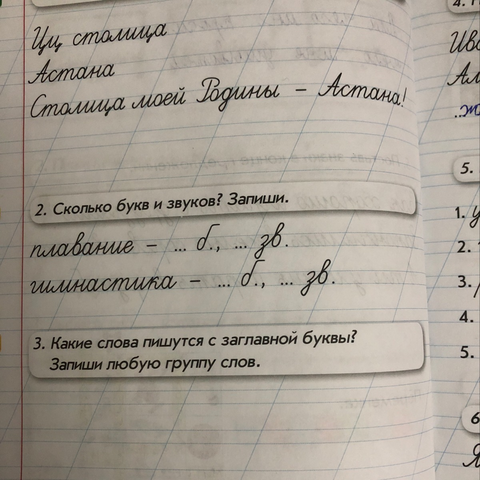 Цц столица
Астана
Столица моей Родины – Астана!
2. Сколько букв и звуков? Запиши.
плавание – ... б., ... зв.
гимнастика – ... б., ... зв.
3. Какие слова пишутся с заглавной буквы?
Запиши любую группу слов.
4.
5.
1.
2.
3.
4.
5.
6